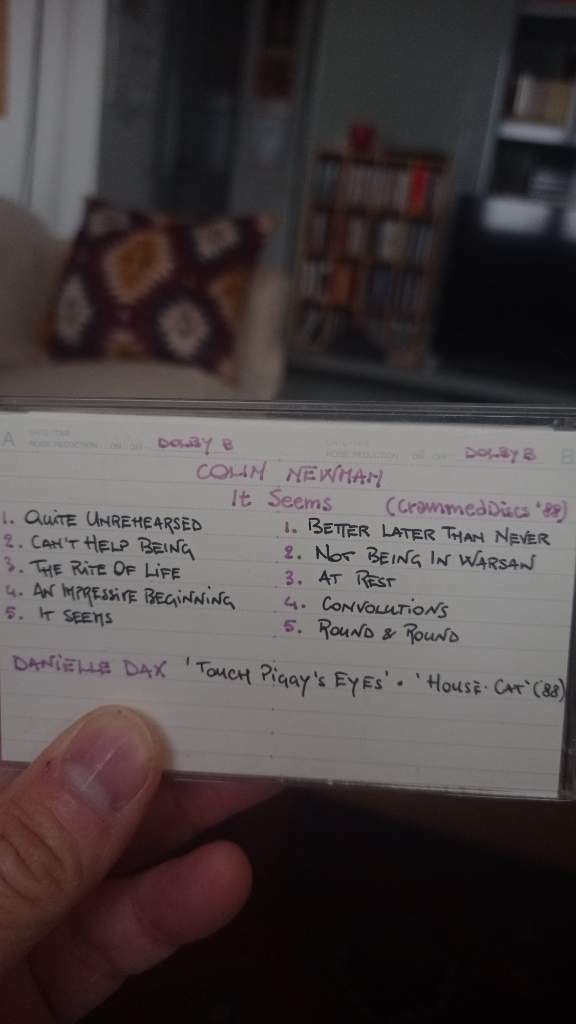 A DATE/TIME NOISE REDUCTION ON OFF DOLBY B
DATE/TIME NOISE REDUCTION ON OFF DOLBY B B
COLIN NEWMAN
It Seems (Crammed Discs '88)
1. QUITE UNREHEARSED
2. CAN'T HELP BEING
3. THE RITE OF LIFE
4. AN IMPRESSIVE BEGINNING
5. IT SEEMS
1. BETTER LATER THAN NEVER
2. NOT BEING IN WARSAW
3. AT REST
4. CONVOLUTIONS
5. ROUND & ROUND
DANIELLE DAX 'TOUCH PIGGY'S EYES' • 'HOUSE-CAT' ('88)